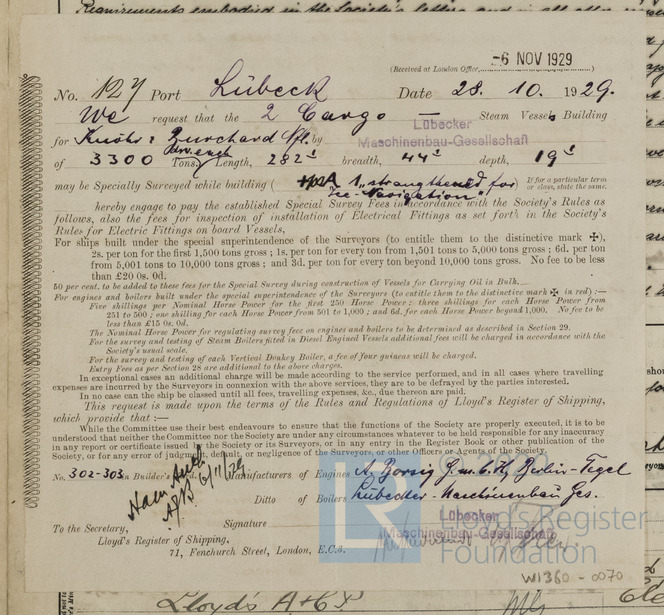 Requirements embodied in the Society's letters and in all other
-6 NOV 1929
(Received at London Office, )
No. 127 Port Lübeck Date 28. 10. 1929.
We request that the 2 Cargo — Steam Vessels Building
for Knöhr & Burchard Nfl. by Lübecker Maschinenbau-Gesellschaft
of 3300 Tons, dw. each Length, 282' breadth, 44' depth, 19'
may be Specially Surveyed while building ( 100A 1 "strengthened for Ice-Navigation" If for a particular term or class, state the same.
hereby engage to pay the established Special Survey Fees in accordance with the Society's Rules as
follows, also the fees for inspection of installation of Electrical Fittings as set forth in the Society's
Rules for Electric Fittings on board Vessels,
For ships built under the special superintendence of the Surveyors (to entitle them to the distinctive mark ✠),
2s. per ton for the first 1,500 tons gross ; 1s. per ton for every ton from 1,501 tons to 5,000 tons gross ; 6d. per ton
from 5,001 tons to 10,000 tons gross ; and 3d. per ton for every ton beyond 10,000 tons gross. No fee to be less
than £20 0s. 0d.
50 per cent. to be added to these fees for the Special Survey during construction of Vessels for Carrying Oil in Bulk.
For engines and boilers built under the special superintendence of the Surveyors (to entitle them to the distinctive mark ✠ in red) :—
Five shillings per Nominal Horse Power for the first 250 Horse Power ; three shillings for each Horse Power from
251 to 500 ; one shilling for each Horse Power from 501 to 1,000 ; and 6d. for each Horse Power beyond 1,000. No fee to be
less than £15 0s. 0d.
The Nominal Horse Power for regulating survey fee on engines and boilers to be determined as described in Section 29.
For the survey and testing of Steam Boilers fitted in Diesel Engined Vessels additional fees will be charged in accordance with the
Society's usual scale.
For the survey and testing of each Vertical Donkey Boiler, a fee of four guineas will be charged.
Entry Fees as per Section 28 are additional to the above charges.
In exceptional cases an additional charge will be made according to the service performed, and in all cases where travelling
expenses are incurred by the Surveyors in connexion with the above services, they are to be defrayed by the parties interested.
In no case can the ship be classed until all fees, travelling expenses, &c., due thereon are paid.
This request is made upon the terms of the Rules and Regulations of Lloyd's Register of Shipping,
which provide that :—
While the Committee use their best endeavours to ensure that the functions of the Society are properly executed, it is to be
understood that neither the Committee nor the Society are under any circumstances whatever to be held responsible for any inaccuracy
in any report or certificate issued by the Society or its Surveyors, or in any entry in the Register Book or other publication of the
Society, or for any error of judgment, default, or negligence of the Surveyors, or other Officers or Agents of the Society.
No. 302-303 in Builder's Yard. Manufacturers of Engines A. Borsig G.m.b.H. Berlin-Tegel
Ditto of Boilers Lübecker Maschinenbau Ges.
6/11/29
Signature Lübecker Maschinenbau-Gesellschaft
To the Secretary,
Lloyd's Register of Shipping,
71, Fenchurch Street, London, E.C.3.
LR
Lloyd's Register
Foundation
W1360 - 0070
Lloyd's A & C P